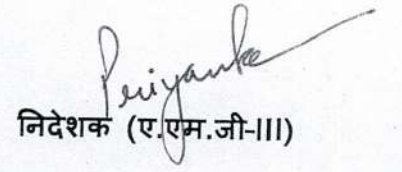 Priyanka
निदेशक (ए.एम.जी-III)